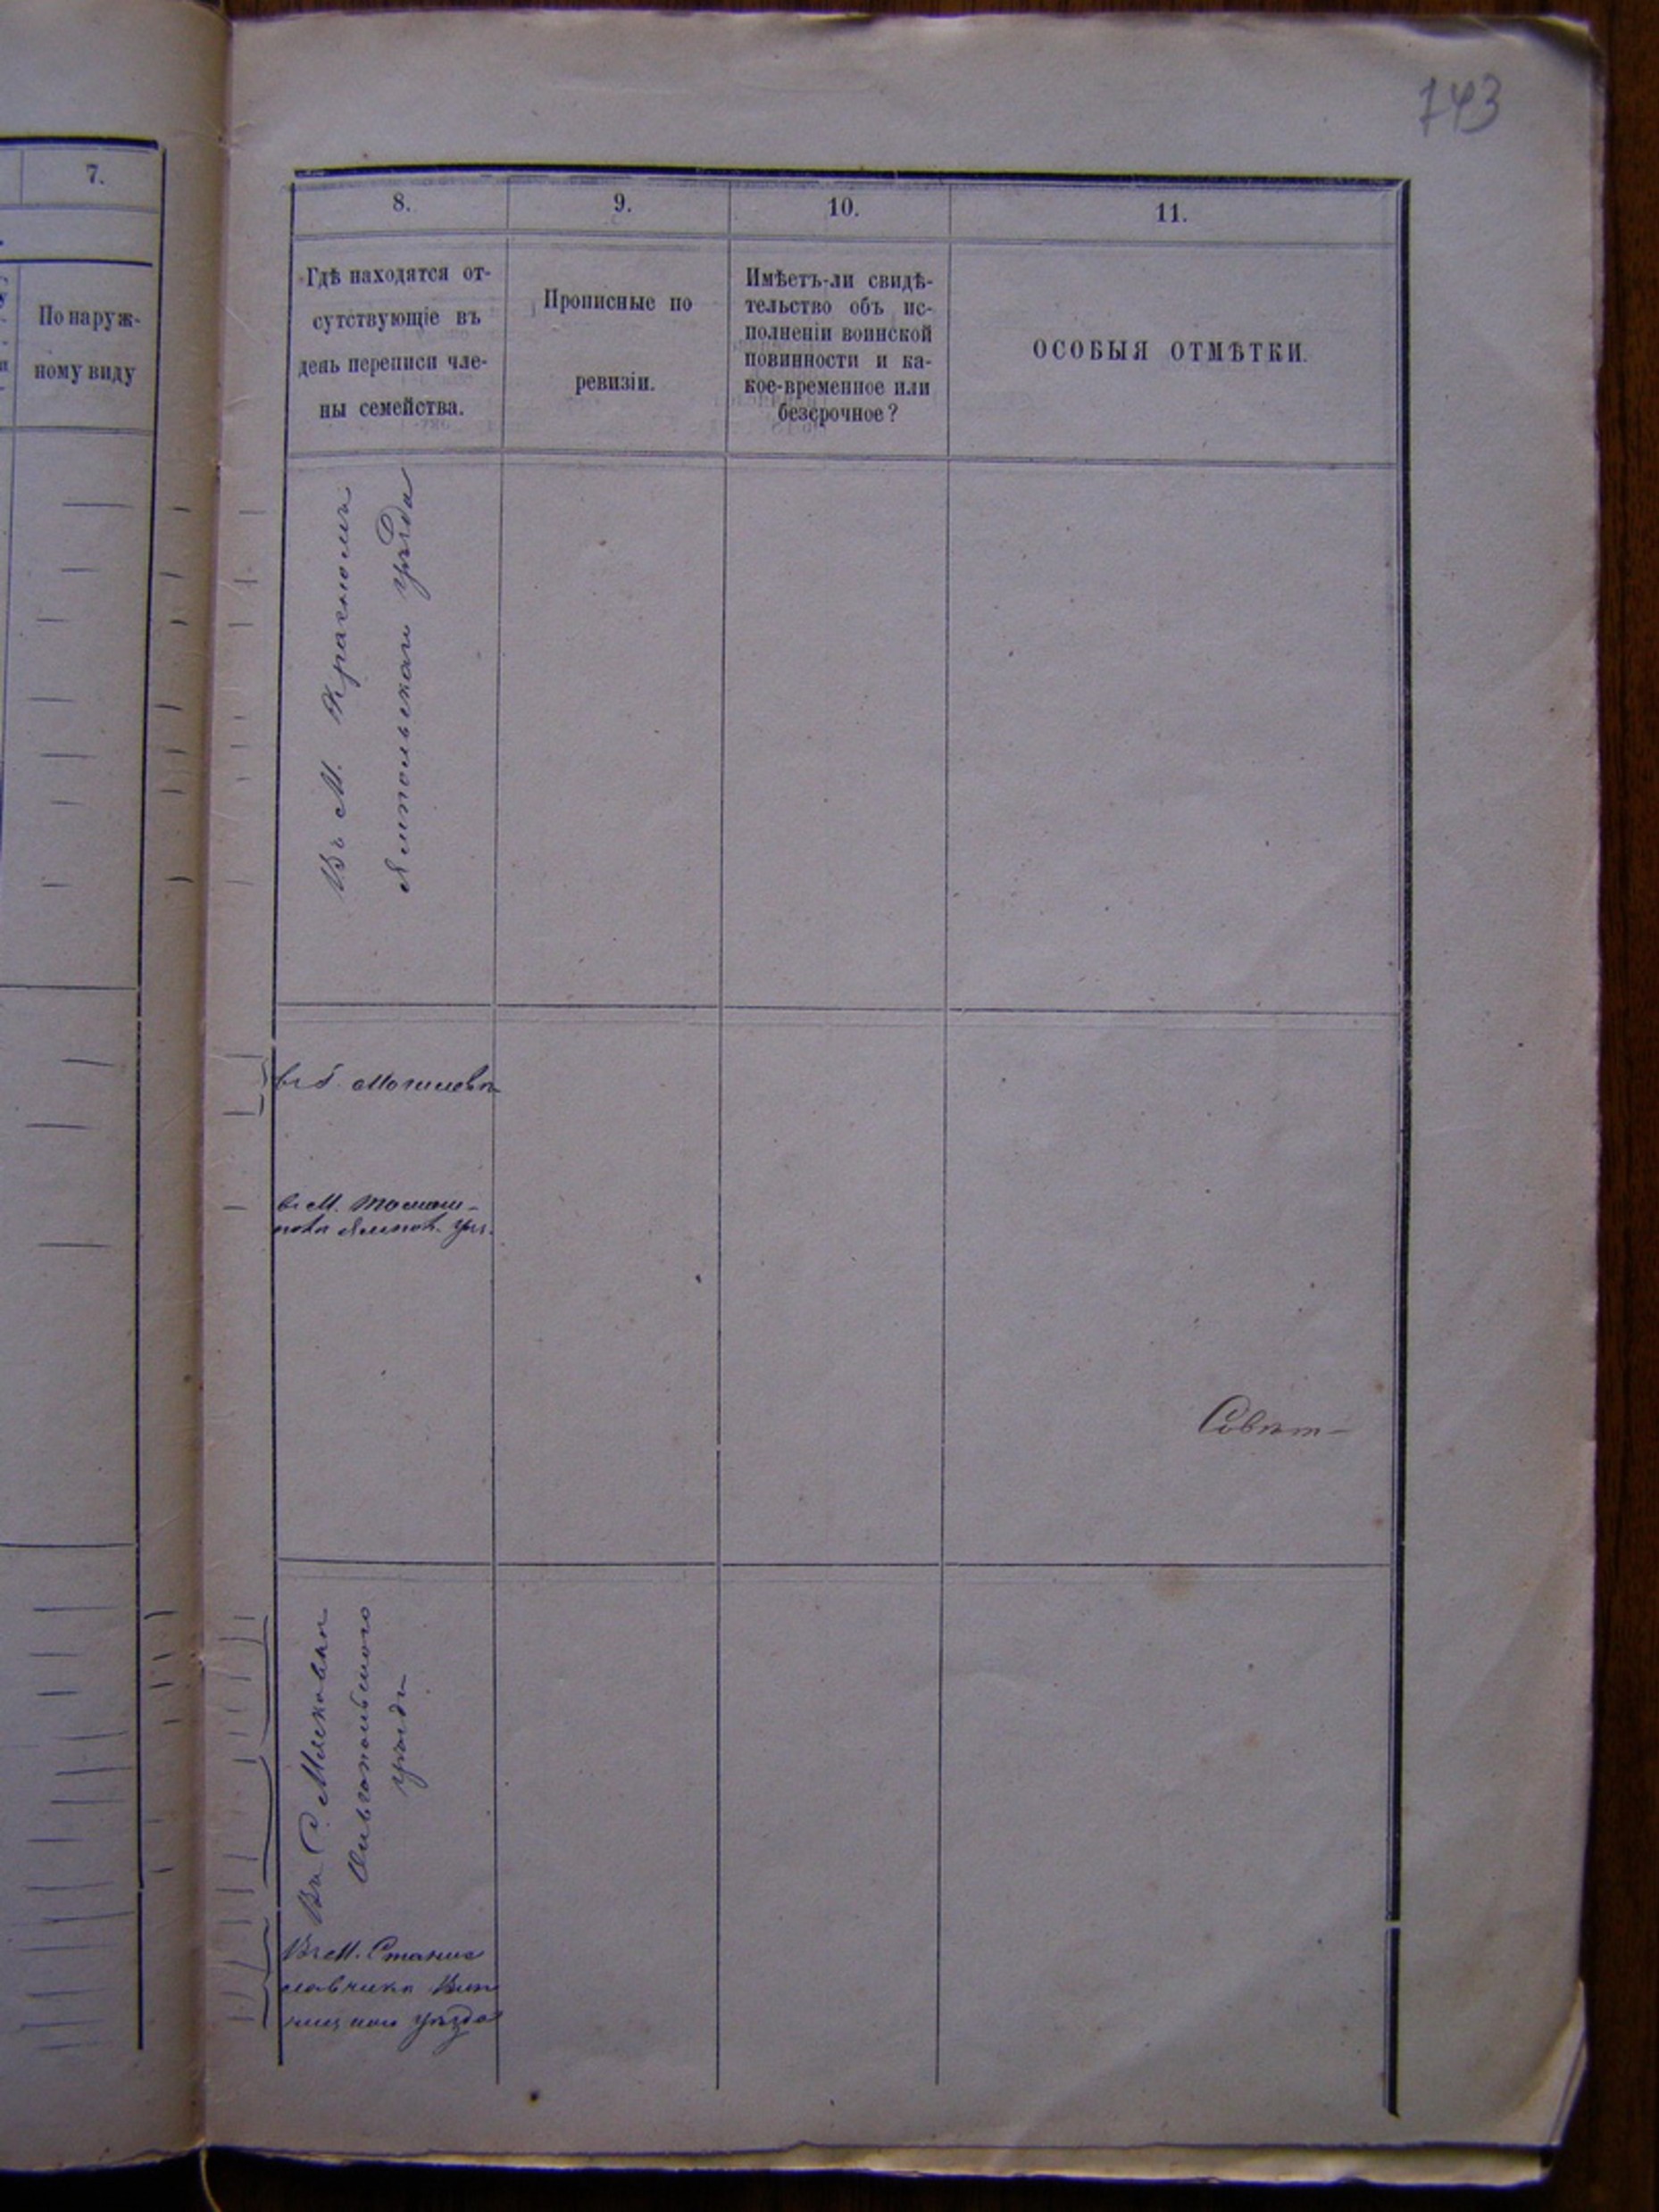 743
7.
По наруж-
ному виду
8.
9.
10.
11.
Гдѣ находятся от-
сутствующіе въ
день переписи чле-
ны семейства.
Прописные по
ревизіи.
Имѣетъ-ли свидѣ-
тельство объ ис-
полненіи воинской
повинности и ка-
кое-временное или
безсрочное?
ОСОБЫЯ ОТМѢТКИ.
Въ М. Красномъ
Ямпольскаго уѣзда
въ г. Могилевѣ
въ М. Томаш-
поля Ямпол. уѣз.
Въ С. Мясковкѣ
Ольгопольскаго
уѣзда
Въ М. Станис
лавчикѣ Вин
ницкаго уѣзда